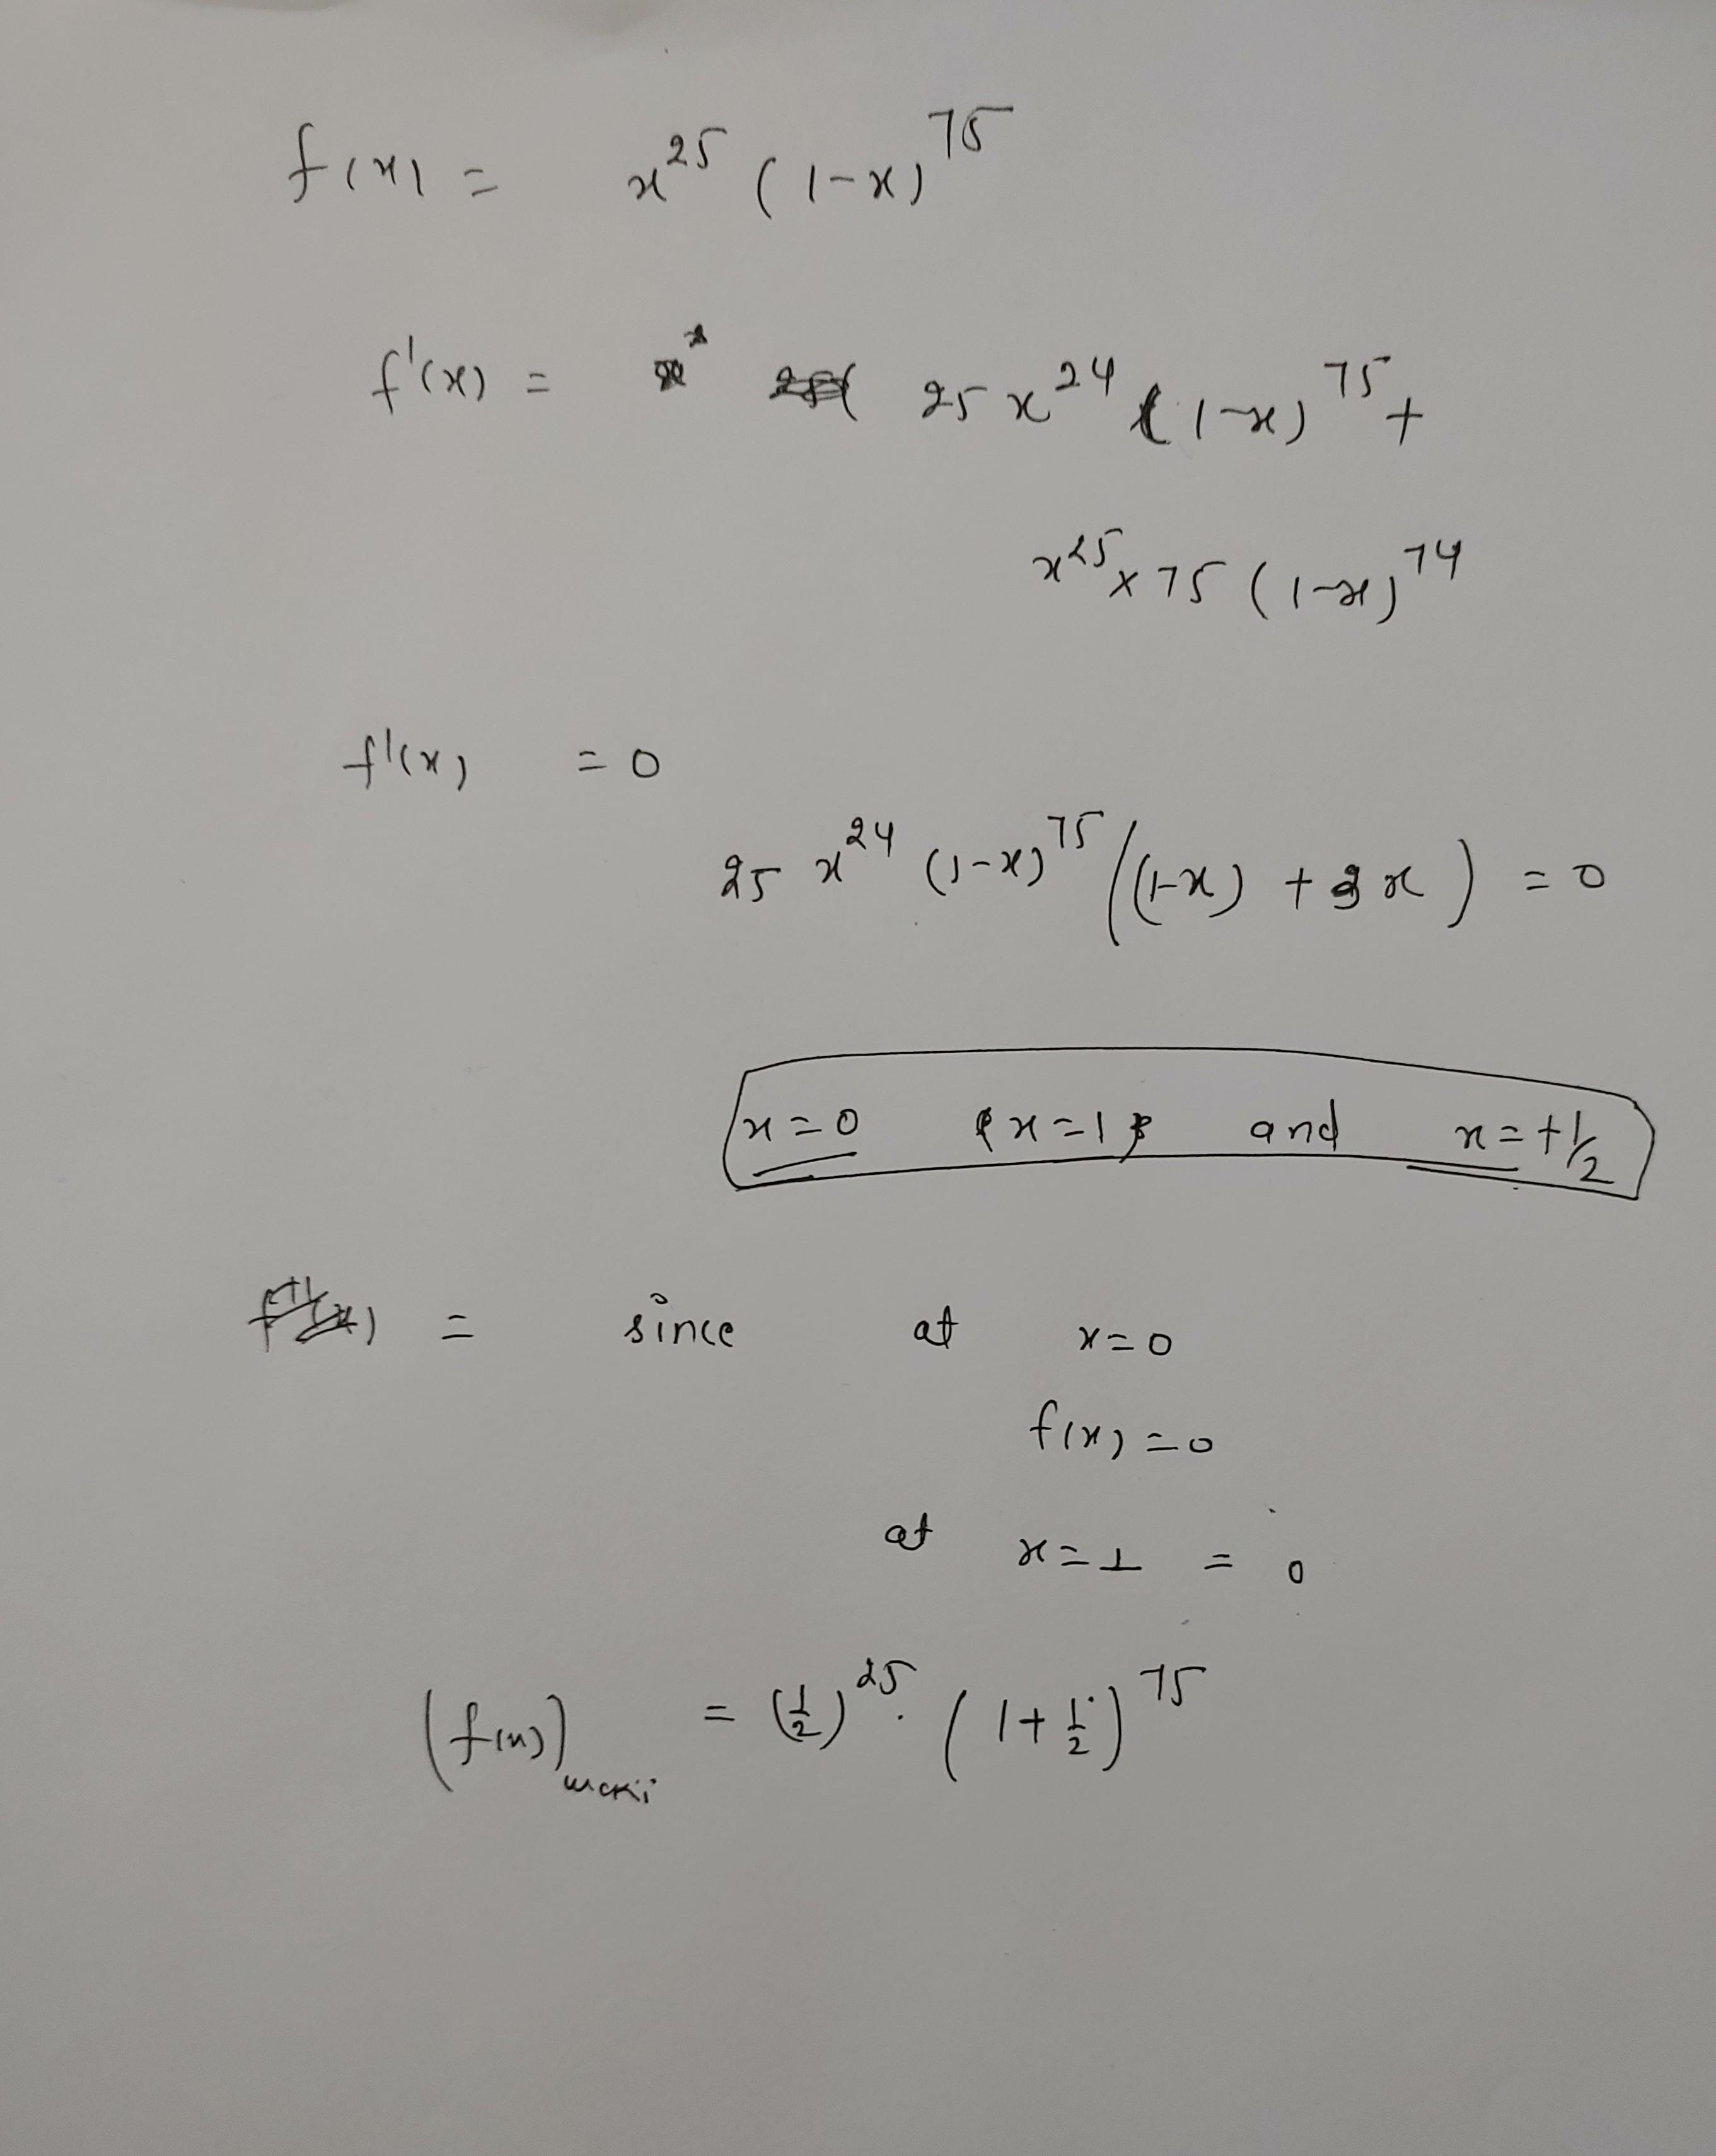 f(x) = x^25 (1-x)^75
f'(x) = 25 x^24 (1-x)^75 +
x^25 × 75 (1-x)^74
f'(x) = 0
25 x^24 (1-x)^75 ((1-x) + 3x) = 0
x=0 x=1 and x=+1/2
= since at x=0
f(x) = 0
at x=1 = 0
(f(x)) = (1/2)^25 . (1+1/2)^75